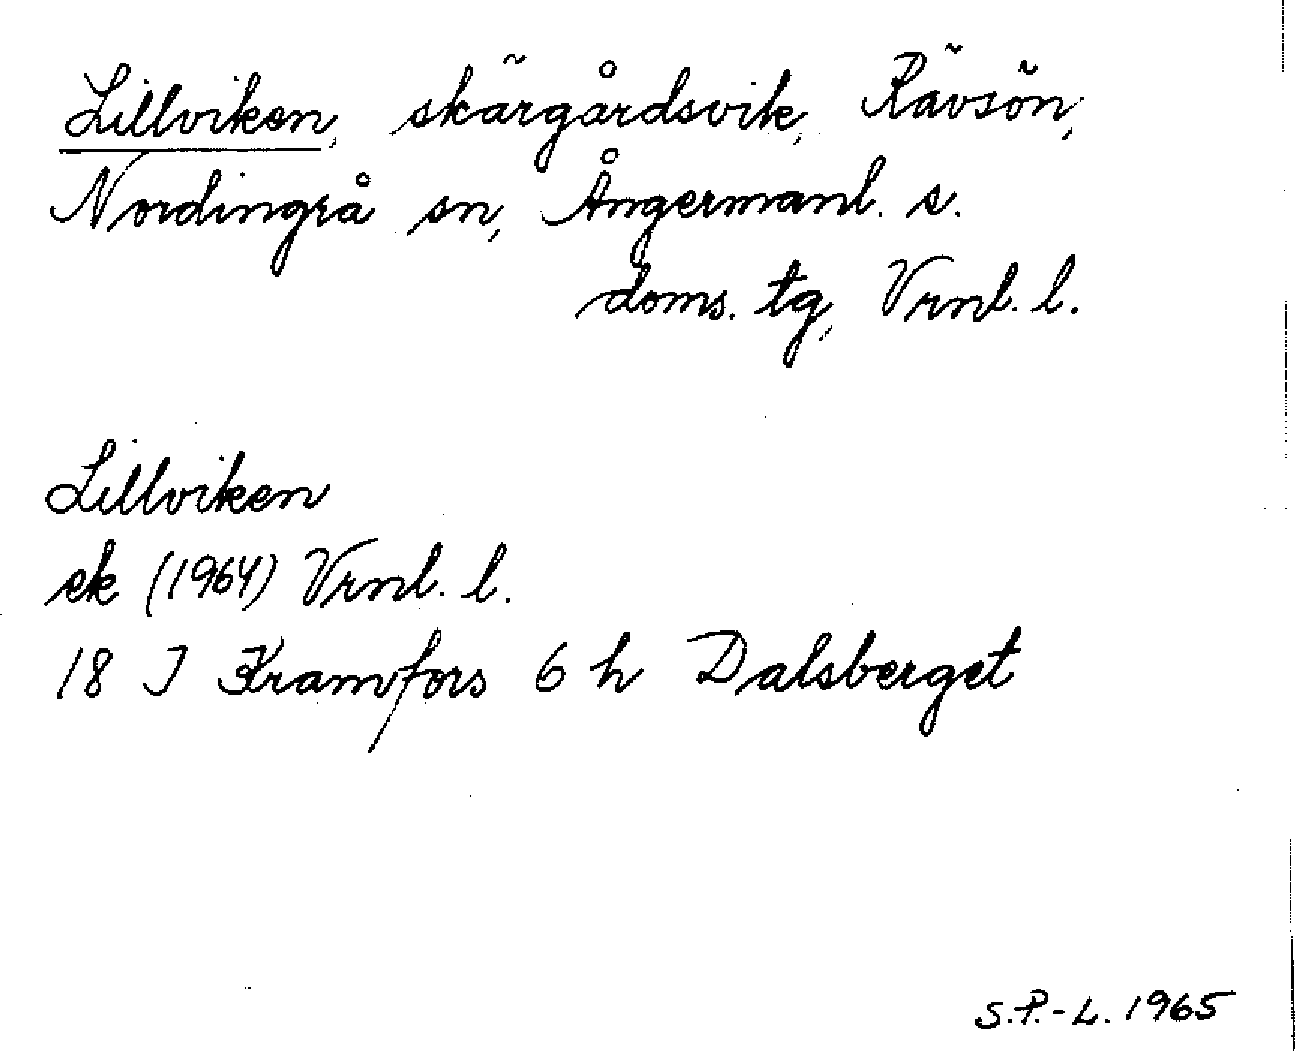 Lillviken, skärgårdsvik, Rävsön,
Nordingrå sn, Ångermanl. s.
doms. tg, Vrnl. l.
Lillviken
ek (1964) Vrnl. l.
18 J Kramfors 6 h Dalsberget
S.P.-L. 1965